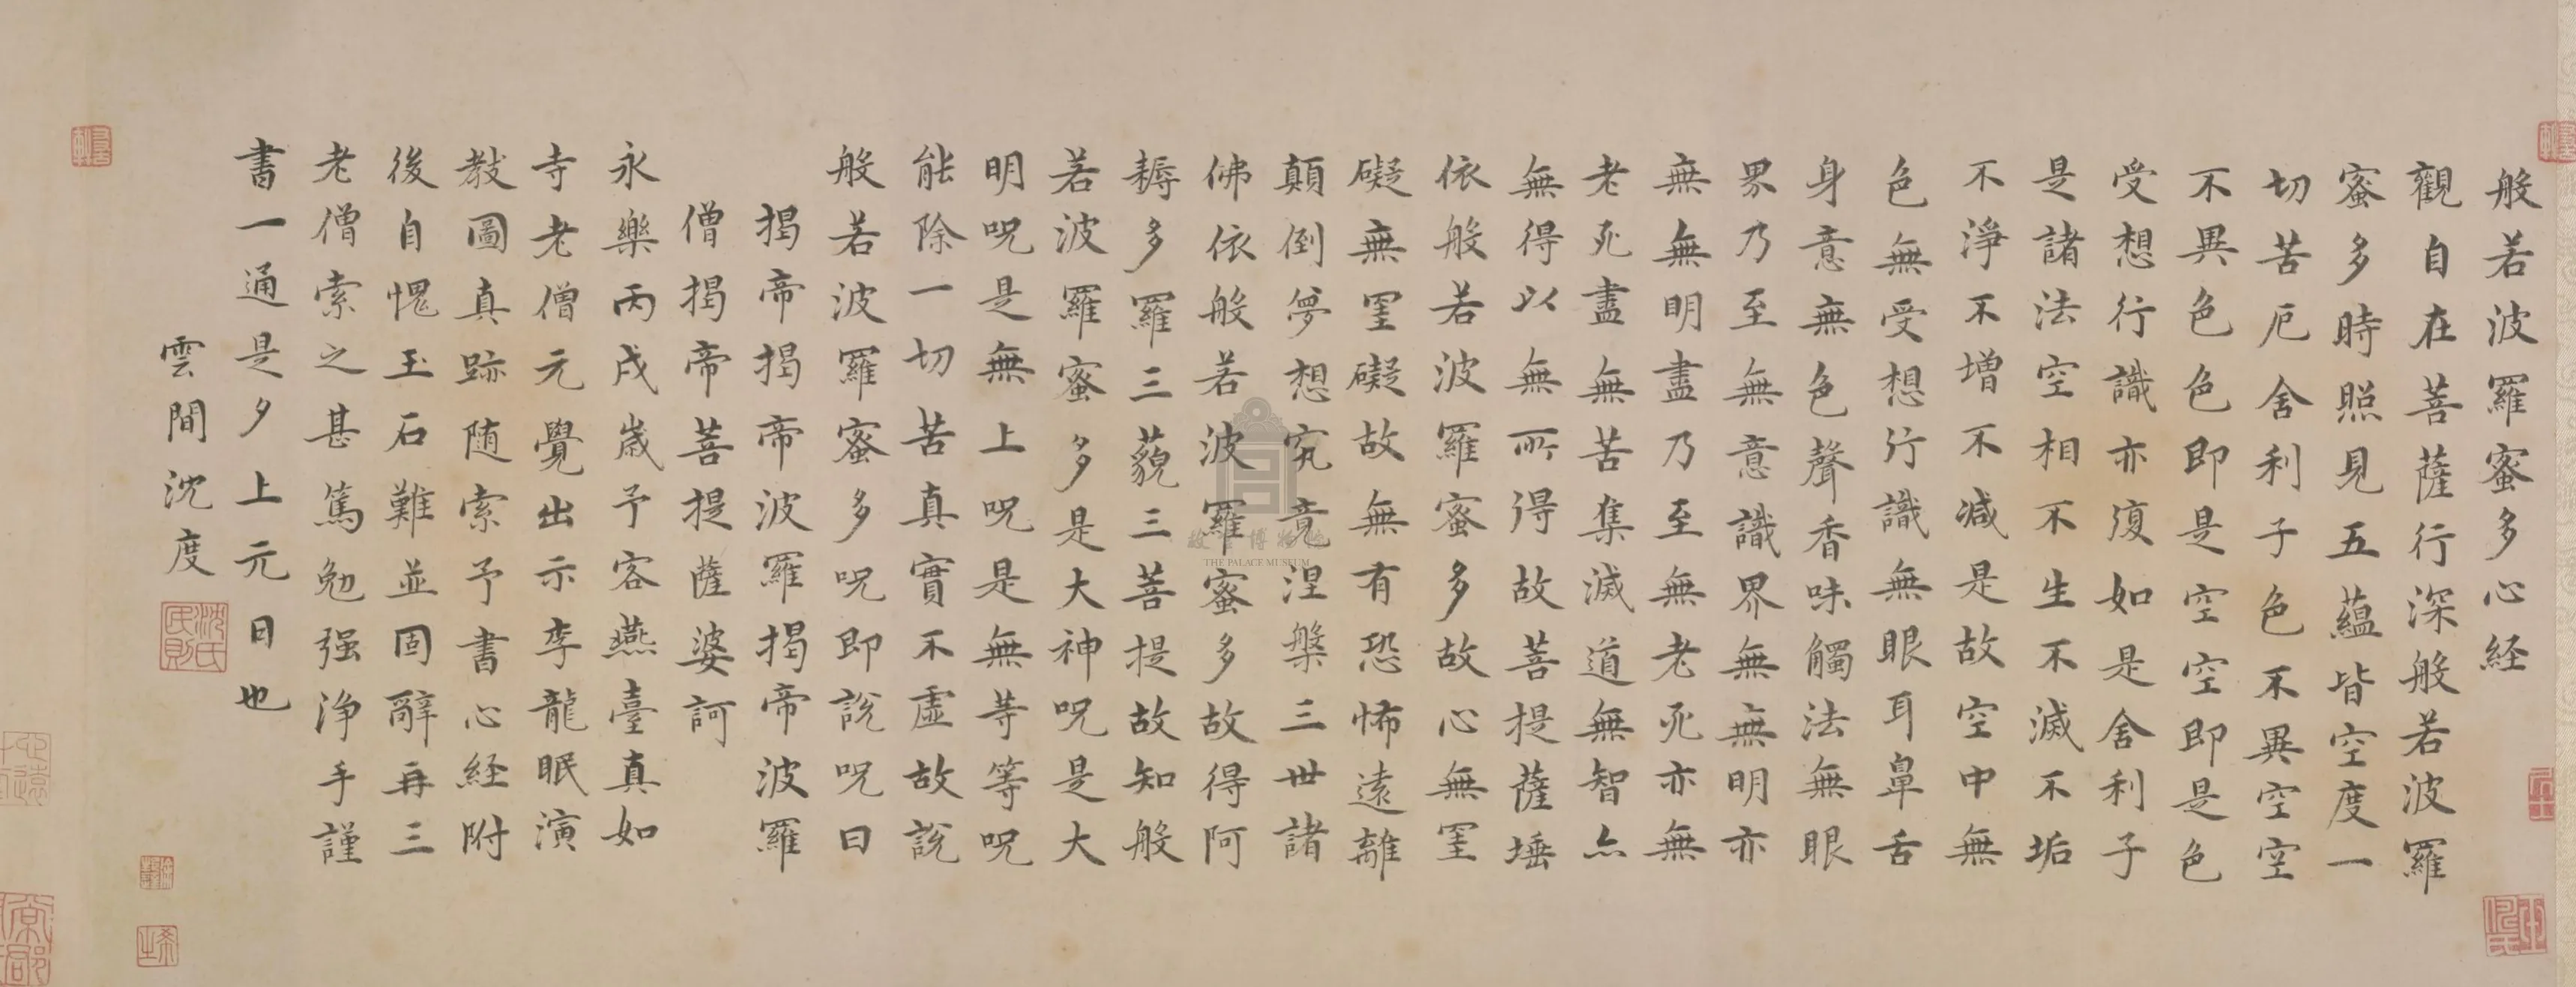 般若波羅蜜多心経
觀自在菩薩行深般若波羅
蜜多時照見五蘊皆空度一
切苦厄舍利子色不異空空
不異色色即是空空即是色
受想行識亦復如是舍利子
是諸法空相不生不滅不垢
不淨不增不減是故空中無
色無受想行識無眼耳鼻舌
身意無色聲香味觸法無眼
界乃至無意識界無無明亦
無無明盡乃至無老死亦無
老死盡無苦集滅道無智亦
無得以無所得故菩提薩埵
依般若波羅蜜多故心無罣
礙無罣礙故無有恐怖遠離
顛倒夢想究竟涅槃三世諸
佛依般若波羅蜜多故得阿
耨多羅三藐三菩提故知般
若波羅蜜多是大神呪是大
明呪是無上呪是無等等呪
能除一切苦真實不虛故說
般若波羅蜜多呪即說呪曰
揭帝揭帝波羅揭帝波羅
僧揭帝菩提薩婆訶
永樂丙戌歲予客燕臺真如
寺老僧元覺出示李龍眠演
教圖真跡随索予書心経附
後自愧玉石難並固辭再三
老僧索之甚篤勉强淨手謹
書一通是夕上元日也
雲間沈度
沈氏民則
故宮博物院
THE PALACE MUSEUM